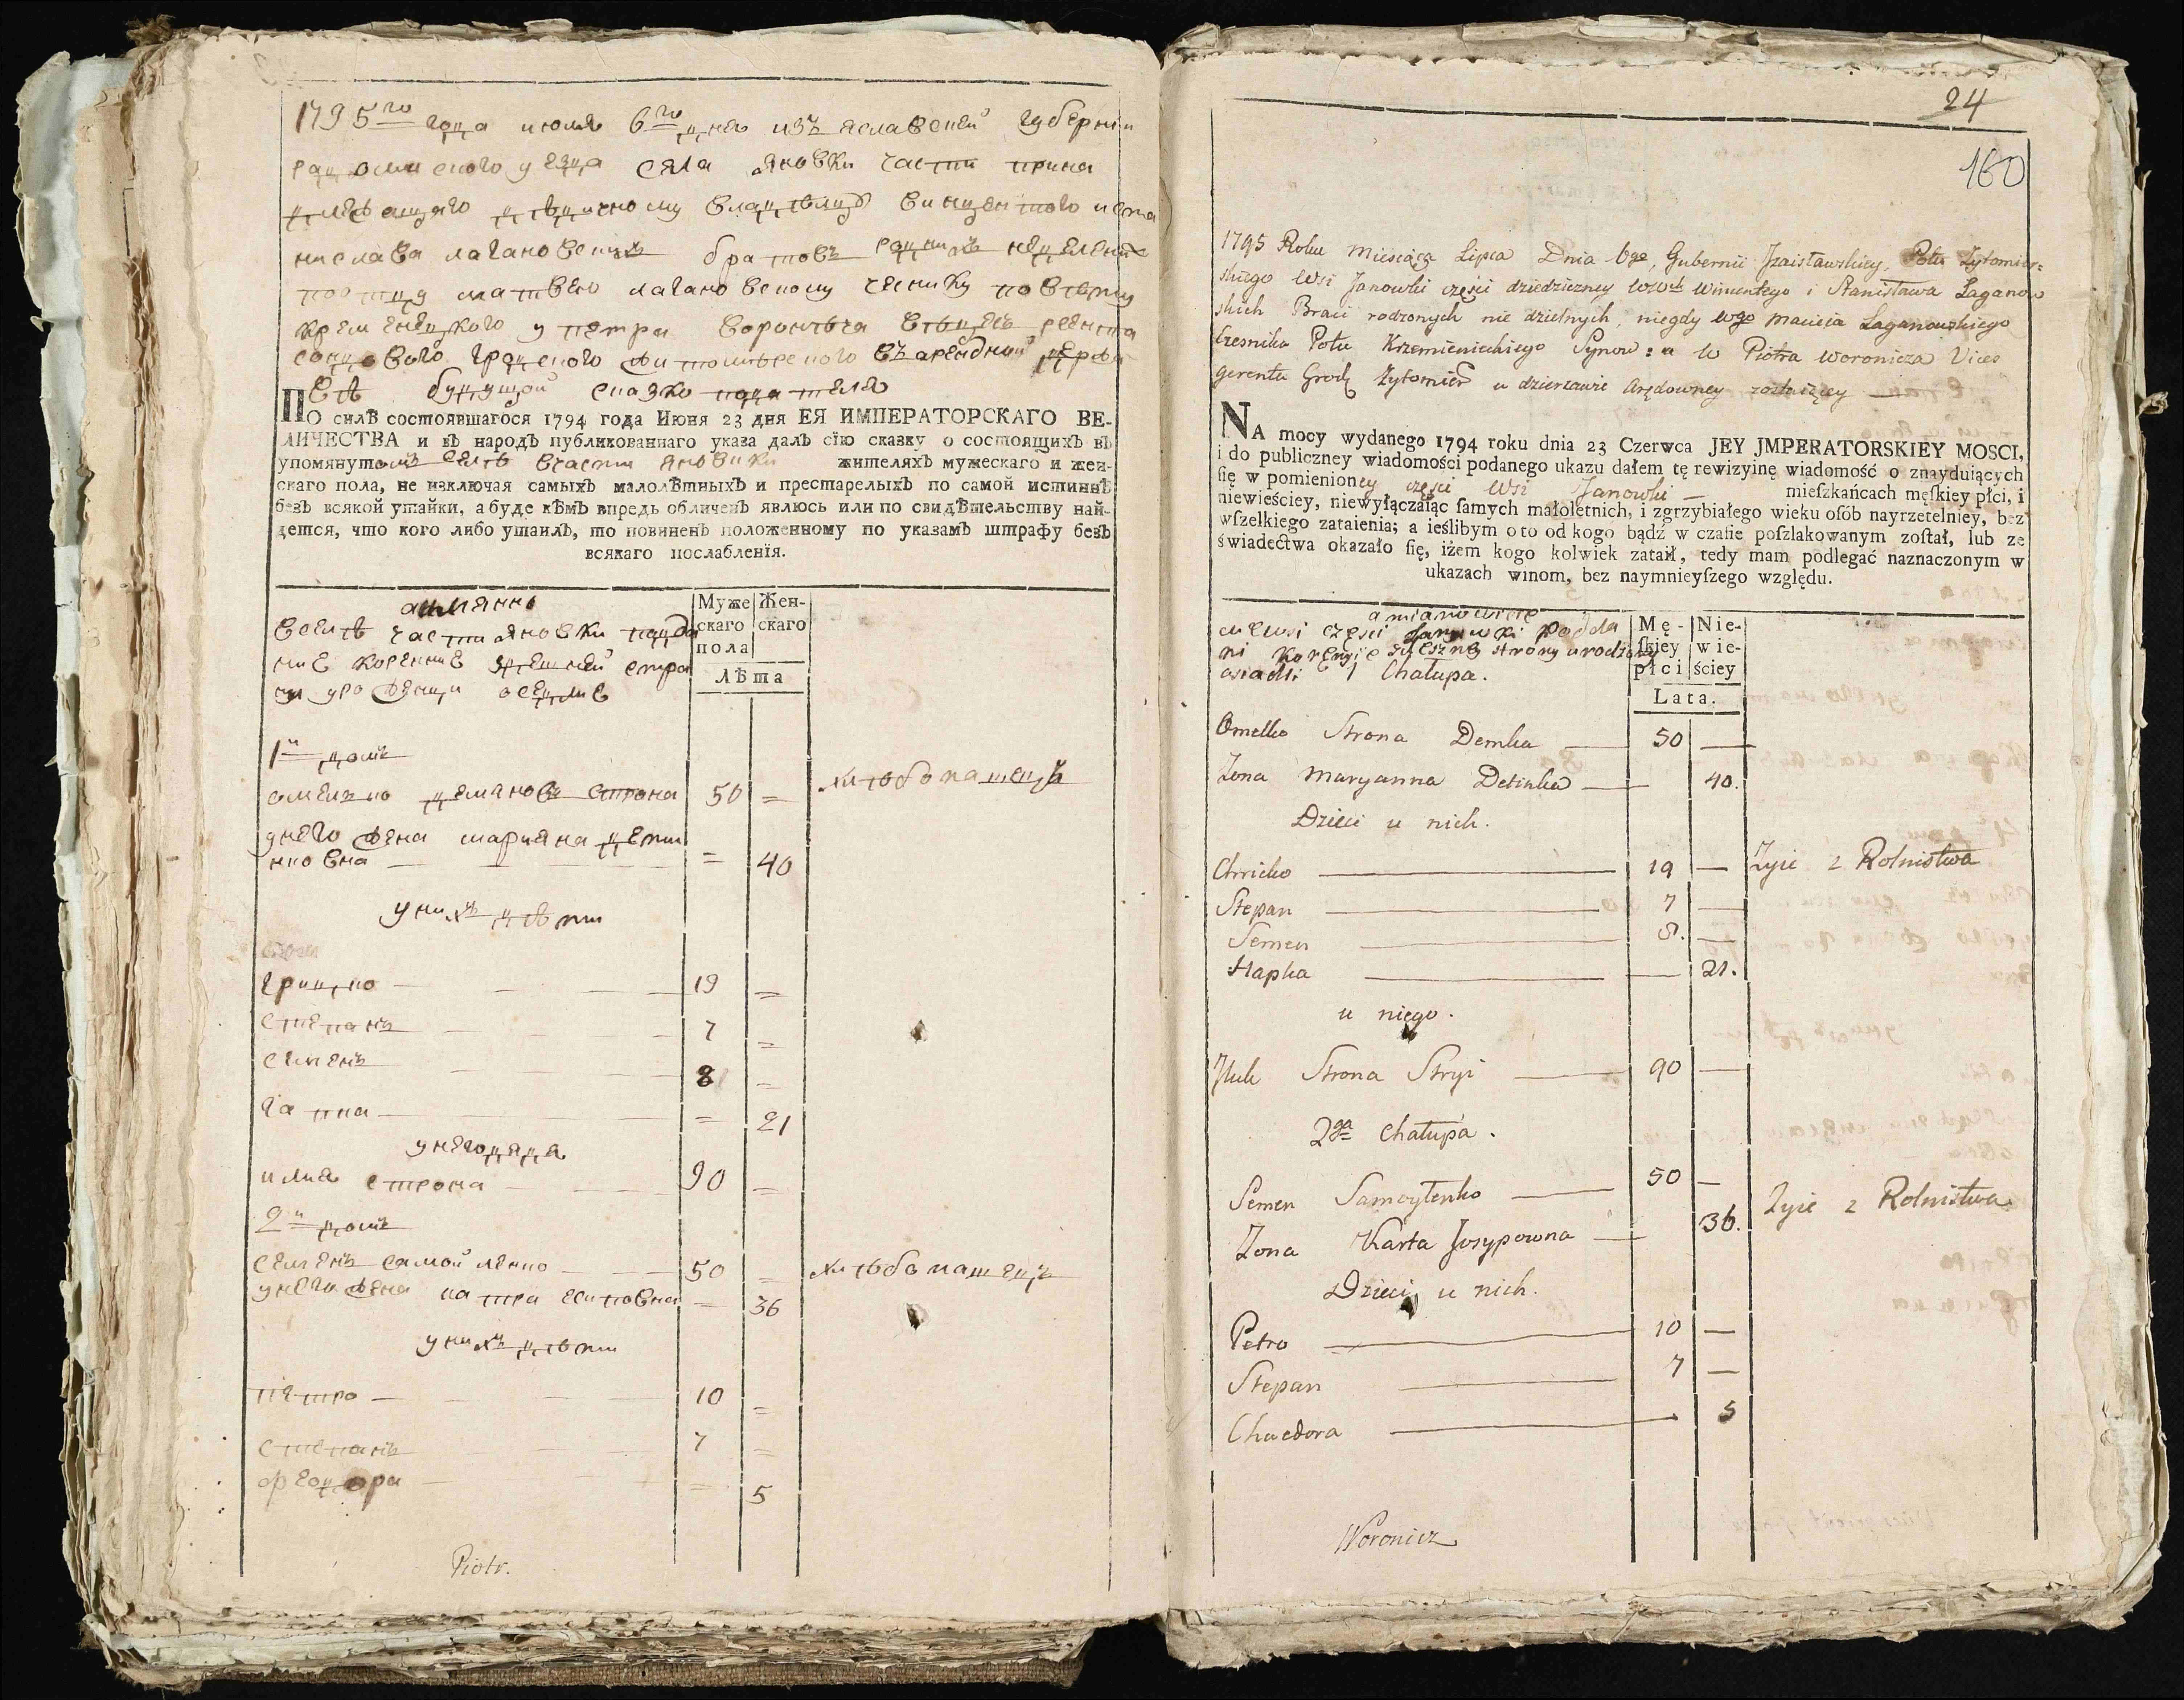 1795го года июля 6го дня изъ яславской губернии
радомисского уезда села яновки части прина
длежащаго дедичному владельцу винцентого и ста
нислава лагановскихъ братовъ родныхъ неделених
по отцу матвею лагановскому чеснику повету
кременецкого у петра воронича
гродского житомирского въ арендной держа
ве будущой сказко подателя
ПО силѣ состоявшагося 1794 года Июня 23 дня ЕЯ ИМПЕРАТОРСКАГО ВЕ-
ЛИЧЕСТВА и въ народъ публикованнаго указа далъ сїю сказку о состоящихъ въ
упомянутомъ селе части яновки жителяхъ мужескаго и жен-
скаго пола, не изключая самыхъ малолѣтныхъ и престарелыхъ по самой истиннѣ
безъ всякой утайки, а буде кѣмъ впредь обличенъ явлюсь или по свидѣтельству най-
дется, что кого либо утаилъ, то повиненъ положенному по указамъ штрафу безъ
всякаго послабленїя.
а имянно
в селе части яновки подда
ние коренние здешней стра
ни урожденци оседлие
Муже
скаго
пола
Жен-
скаго
Лѣта
1й домъ
омелько демяновъ строна 50 = хлебопашецъ
у него жена марияна дети
нковна = 40
у нихъ дети
грицко 19 =
степанъ 7 =
семенъ 8 =
гапка = 21
у него дядя
илия строна 90 =
2й домъ
семенъ самойленко 50 = хлебопашецъ
у него жена катра есиповна = 36
у нихъ дети
петро 10 =
степанъ 7 =
феодора = 5
Piotr.
24
160
1795 Roku Miesiąca Lipca Dnia 6go, Gubernii Jzaisławskiey, Pottu Zytomir=
skiego Wsi Janowki części dziedziczney Wincentego i Stanisława Łaganow
skich Braci rodzonych nie dzielnych, niegdy Wgo Macieia Łaganowskiego
Czesnika Pottu Krzemienieckiego Synow: a W Piotra Woronicza Vices
gerenta Grodz Zytomier w dzierzawie Arędowney zostaiącey
NA mocy wydanego 1794 roku dnia 23 Czerwca JEY JMPERATORSKIEY MOSCI,
i do publiczney wiadomości podanego ukazu dałem tę rewizyinę wiadomość o znayduiących
ſię w pomienioney części Wsi Janowki — mieſzkańcach męſkiey płci, i
niewieściey, niewyłączaiąc ſamych małoletnich, i zgrzybiałego wieku oſób nayrzetelniey, bez
wſzelkiego zataienia; a ieślibym o to od kogo bądź w czaſie poſzlakowanym zoſtał, lub ze
świadectwa okazało ſię, iżem kogo kolwiek zataił, tedy mam podlegać naznaczonym w
ukazach winom, bez naymnieyſzego względu.
a mianowicie
we wsi części Janowki podda
ni korennie tuteszney strony urodzony
osiadli 1 Chałupa.
Mę-
ſkiey
płci
Nie-
wie-
ściey
Lata.
Omelko Strona Demka 50 —
Zona Maryanna Detinka — 40.
Dzieci u nich.
Chricko 19 — Zyie z Rolnistwa
Stepan 7 —
Semen 8. —
Hapka — 21.
u niego.
Jluk Strona Stryi 90 —
2ga Chałupa.
Semen Samoylenko 50 —
Zyie z Rolnistwa.
Zona Karta Josypowna — 36.
Dzieci u nich.
Petro 10 —
Stepan 7 —
Chwedora 5
Woronicz